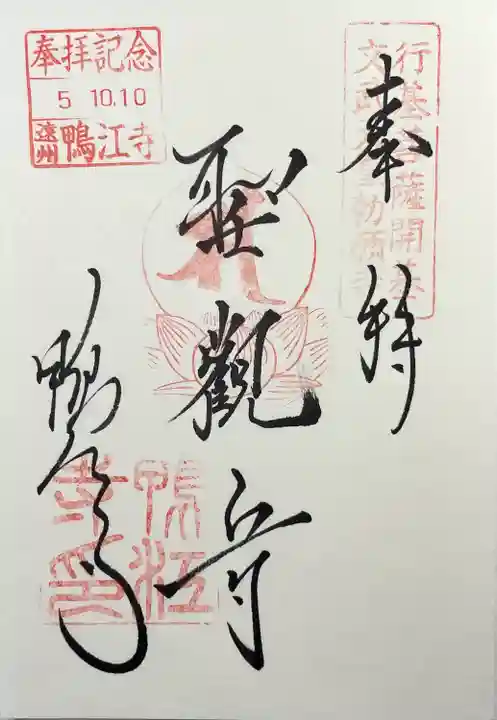 行基菩薩開基
文武天皇勅願寺
奉拝
聖観音
奉拝記念
5 10.10
遠州 鴨江寺
鴨江寺
鴨江
寺印